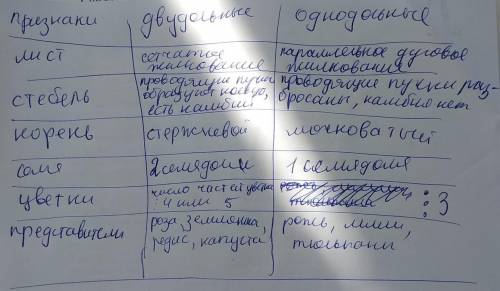 признаки двудольные однодольные
лист сетчатое жилкование параллельное дуговое жилкование
стебель проводящие пучки образуют кольцо, есть камбий проводящие пучки разбросаны, камбия нет
корень стержневой мочковатый
семя 2 семядоли 1 семядоля
цветки число частей цветка : 4 или 5 : 3
представители роза, земляника, редис, капуста рожь, лилии, тюльпаны